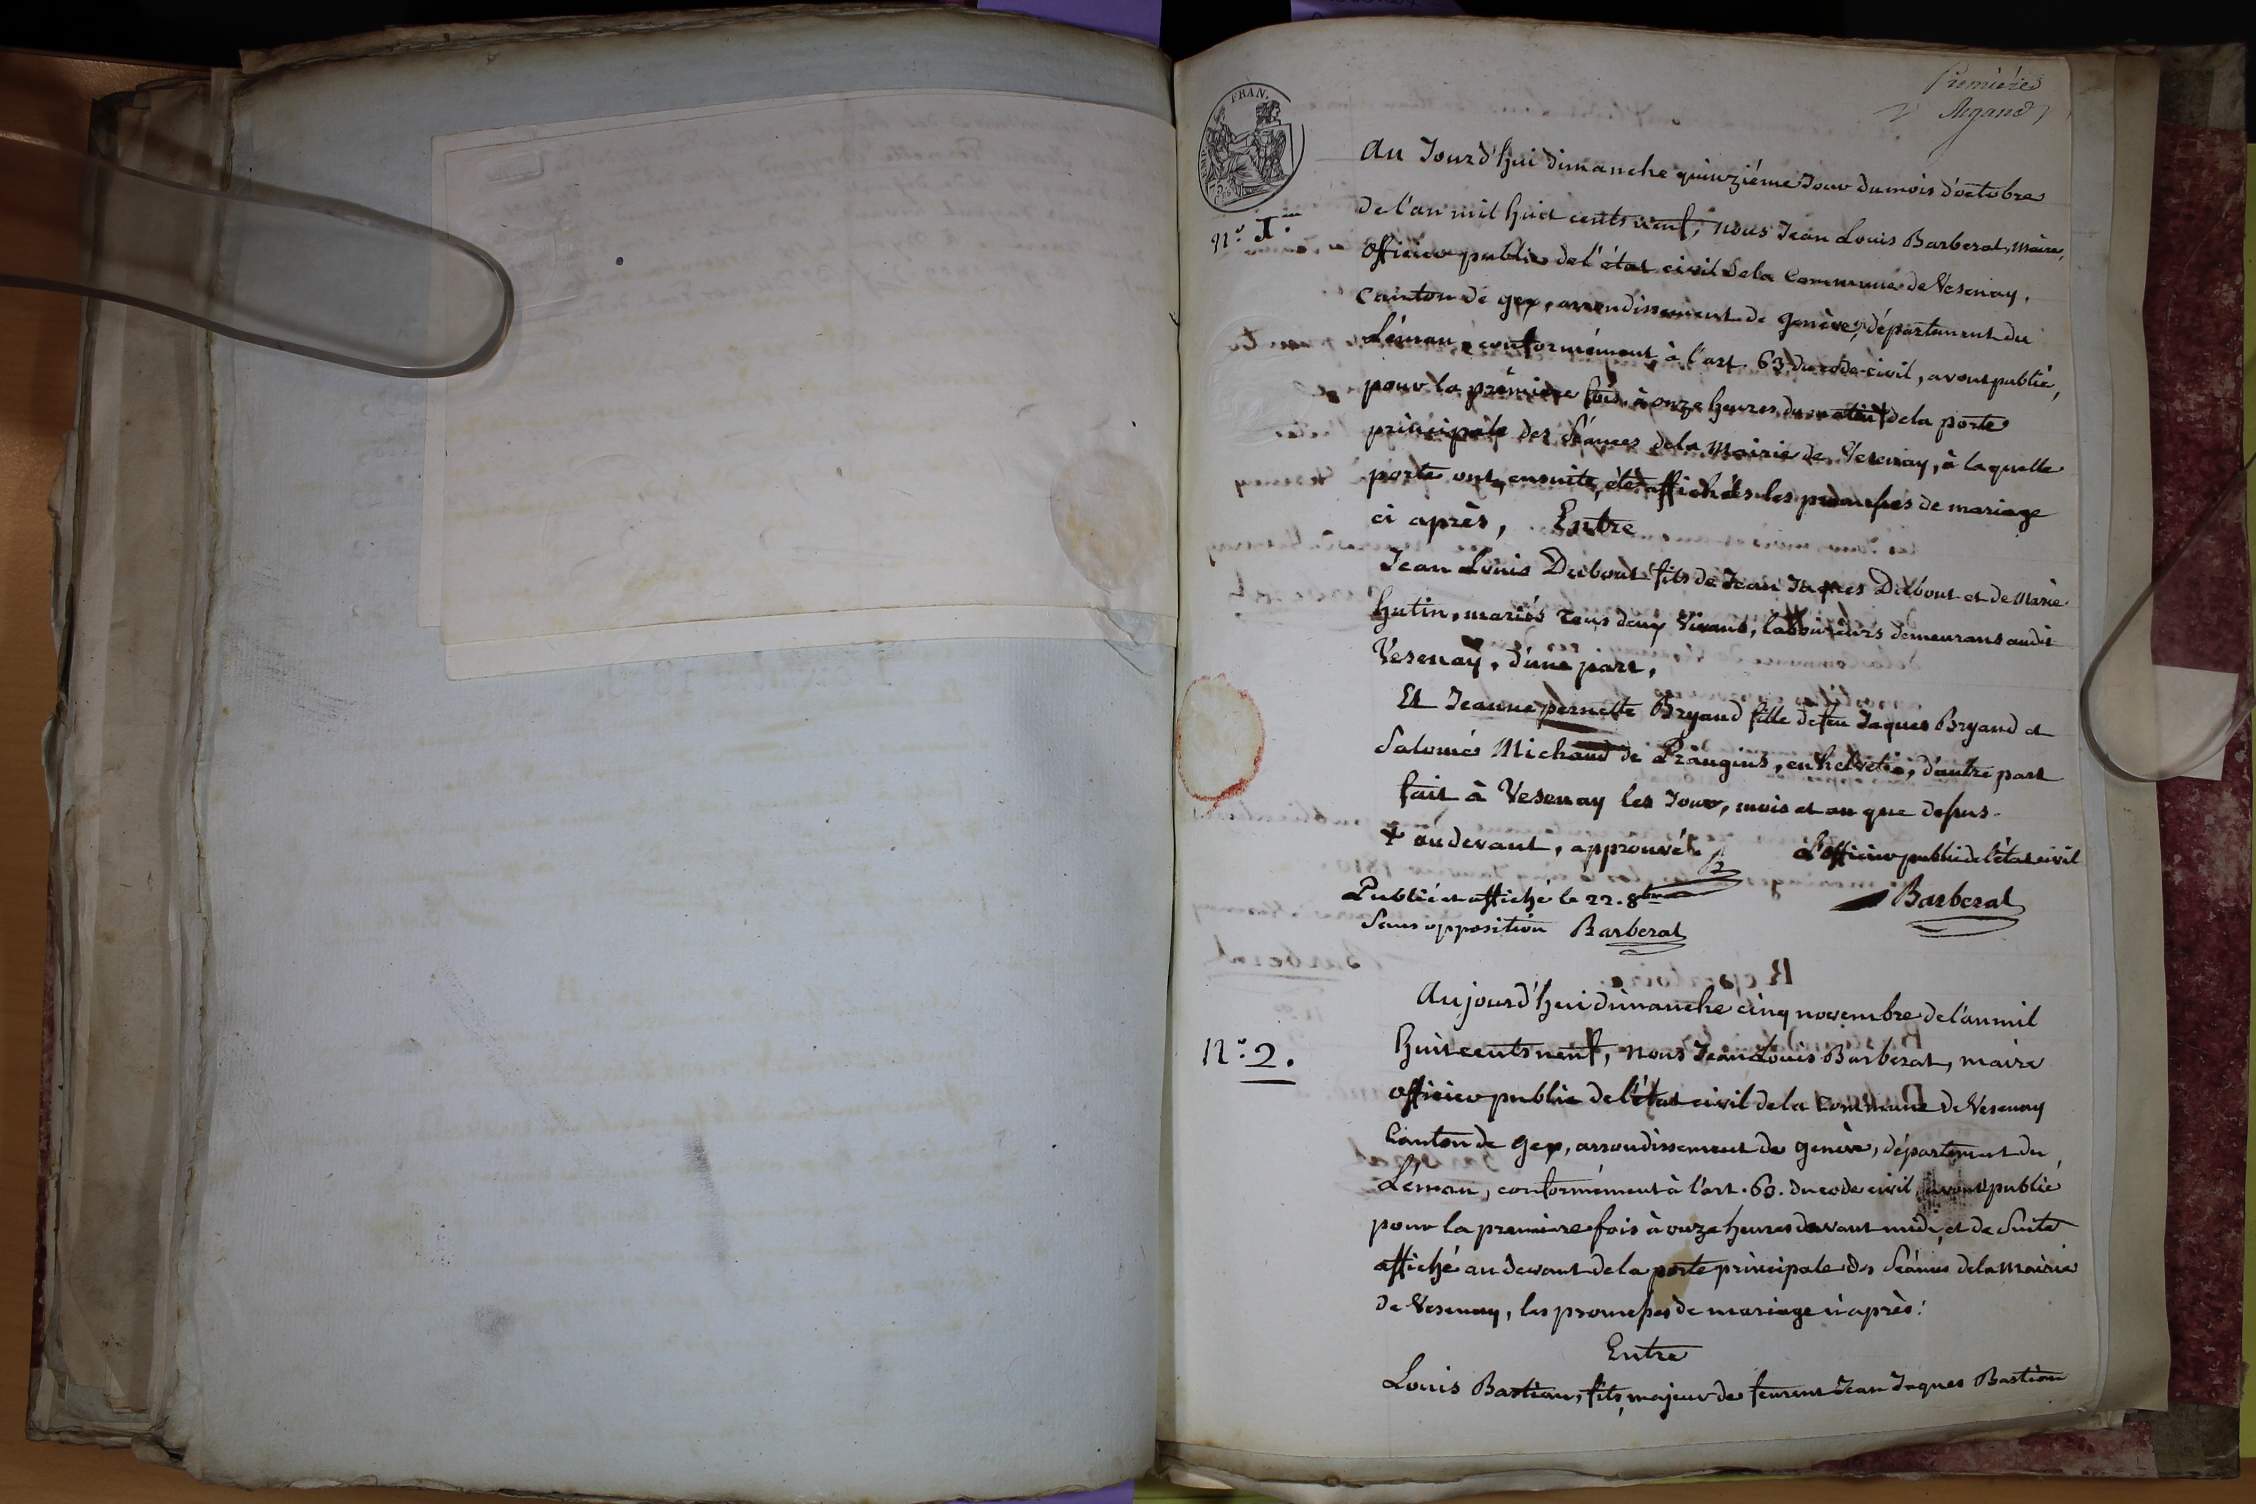 Première
Argand
FRAN.
75
Au Jourd'hui dimanche quinziéme Jour du mois d'octobre
N.º 1.
de l'an mil huit cents neuf, nous Jean Louis Barberat, Maire,
officier public de l'état civil dela Commune de Vesenay,
Canton de gex, arrondissement de genève, département du
Léman, conformément à l'art. 63 du code civil, avons publié,
pour la prémiere fois, à onze heures du matin + dela porte
principale des séances dela Mairie de Vesenay, à laquelle
porte ont, ensuite, été affichés les promesses de mariage
ci après, Entre
Jean Louis Dubout fils de Jean Jaques Dubout et de Marie
hutin, mariés Tous deux Vivans, laboureurs demeurans audit
Vesenay, d'une part,
Et Jeanne pernette Bryand fille defeu Jaques Bryand et
Salomé Michaud de Prangins, en helvetie, d'autre part
fait à Vesenay les Jour, mois et an que dessus.
+ audevant, approuvé B
L'officier public de l'état civil
Barberat
Publié et affiché le 22. 8bre
Sans opposition Barberat
Aujourd'hui dimanche cinq novembre de l'an mil
N.º 2.
huit cents neuf, nous Jean Louis Barberat, maire
officier public de l'état civil dela Commune de Vesenay
Canton de gex, arrondissement de genève, département du
Léman, conformément à l'art. 63. du code civil, avons publié
pour la premiere fois à onze heures devant midi, et de Suite
affiché au devant dela porte principale des Séances dela Mairie
de Vesenay, les promesses de mariage ci après:
Entre
Louis Bastian, fils majeur de Jean Jaques Bastian